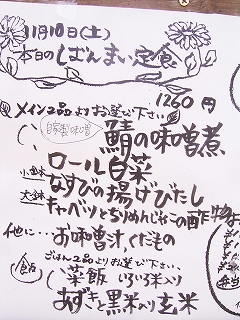 11月10日(土)
本日のしぜんまい定食
1260円
メイン2品よりお選び下さい
自家製味噌
鯖の味噌煮
ロール白菜
小鉢 なすびの揚げびたし
大鉢 キャベツとちりめんじゃこの酢
他に…お味噌汁、くだもの
ごはん2品よりお選び下さい、
菜飯 いろいろ米入り
あずきと黒米入り玄米